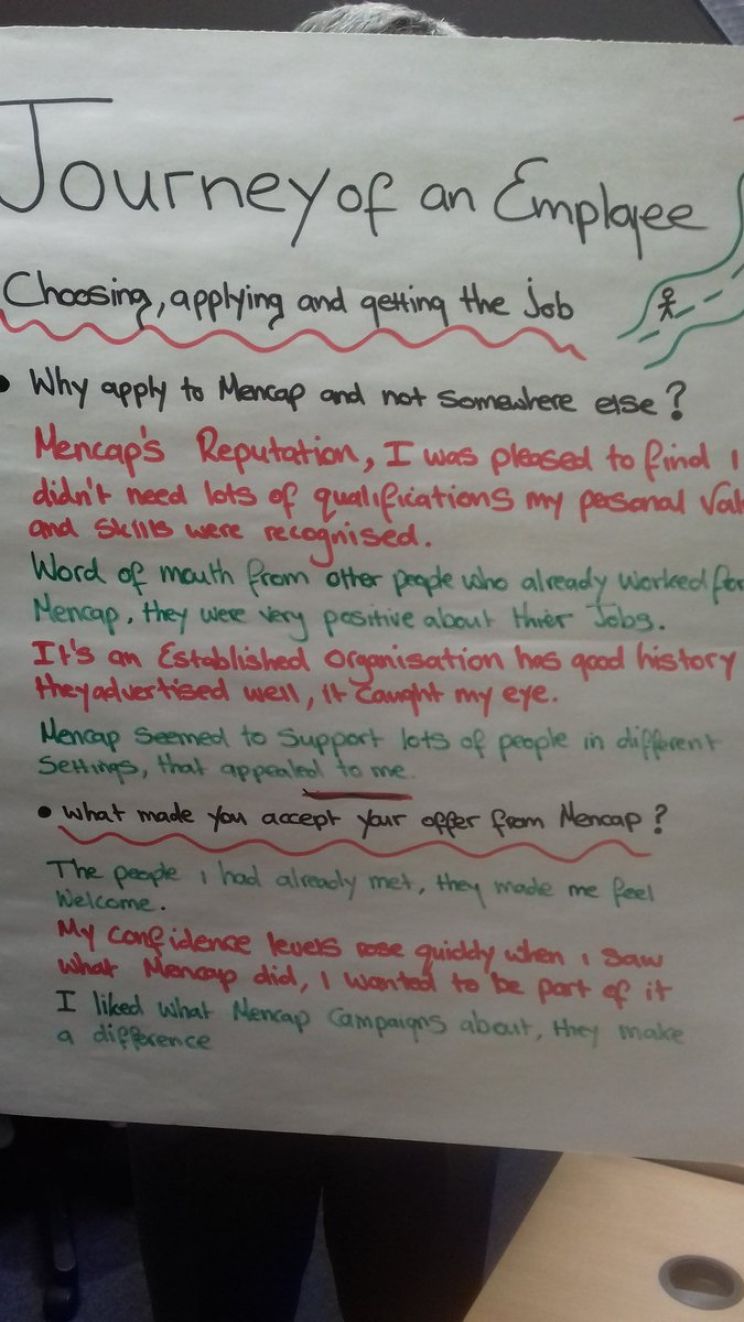 Journey of an Employee
Choosing, applying and getting the job
• Why apply to Mencap and not somewhere else?
Mencap's Reputation, I was pleased to find I
didn't need lots of qualifications my personal Val
and skills were recognised.
Word of mouth from other people who already worked for
Mencap, they were very positive about thier Jobs.
It's an Established organisation has good history
they advertised well, it caught my eye.
Mencap seemed to support lots of people in different
settings, that appealed to me.
• what made you accept your offer from Mencap?
The people I had already met, they made me feel
welcome.
My confidence levels rose quickly when I saw
what Mencap did, I wanted to be part of it
I liked what Mencap Campaigns about, they make
a difference